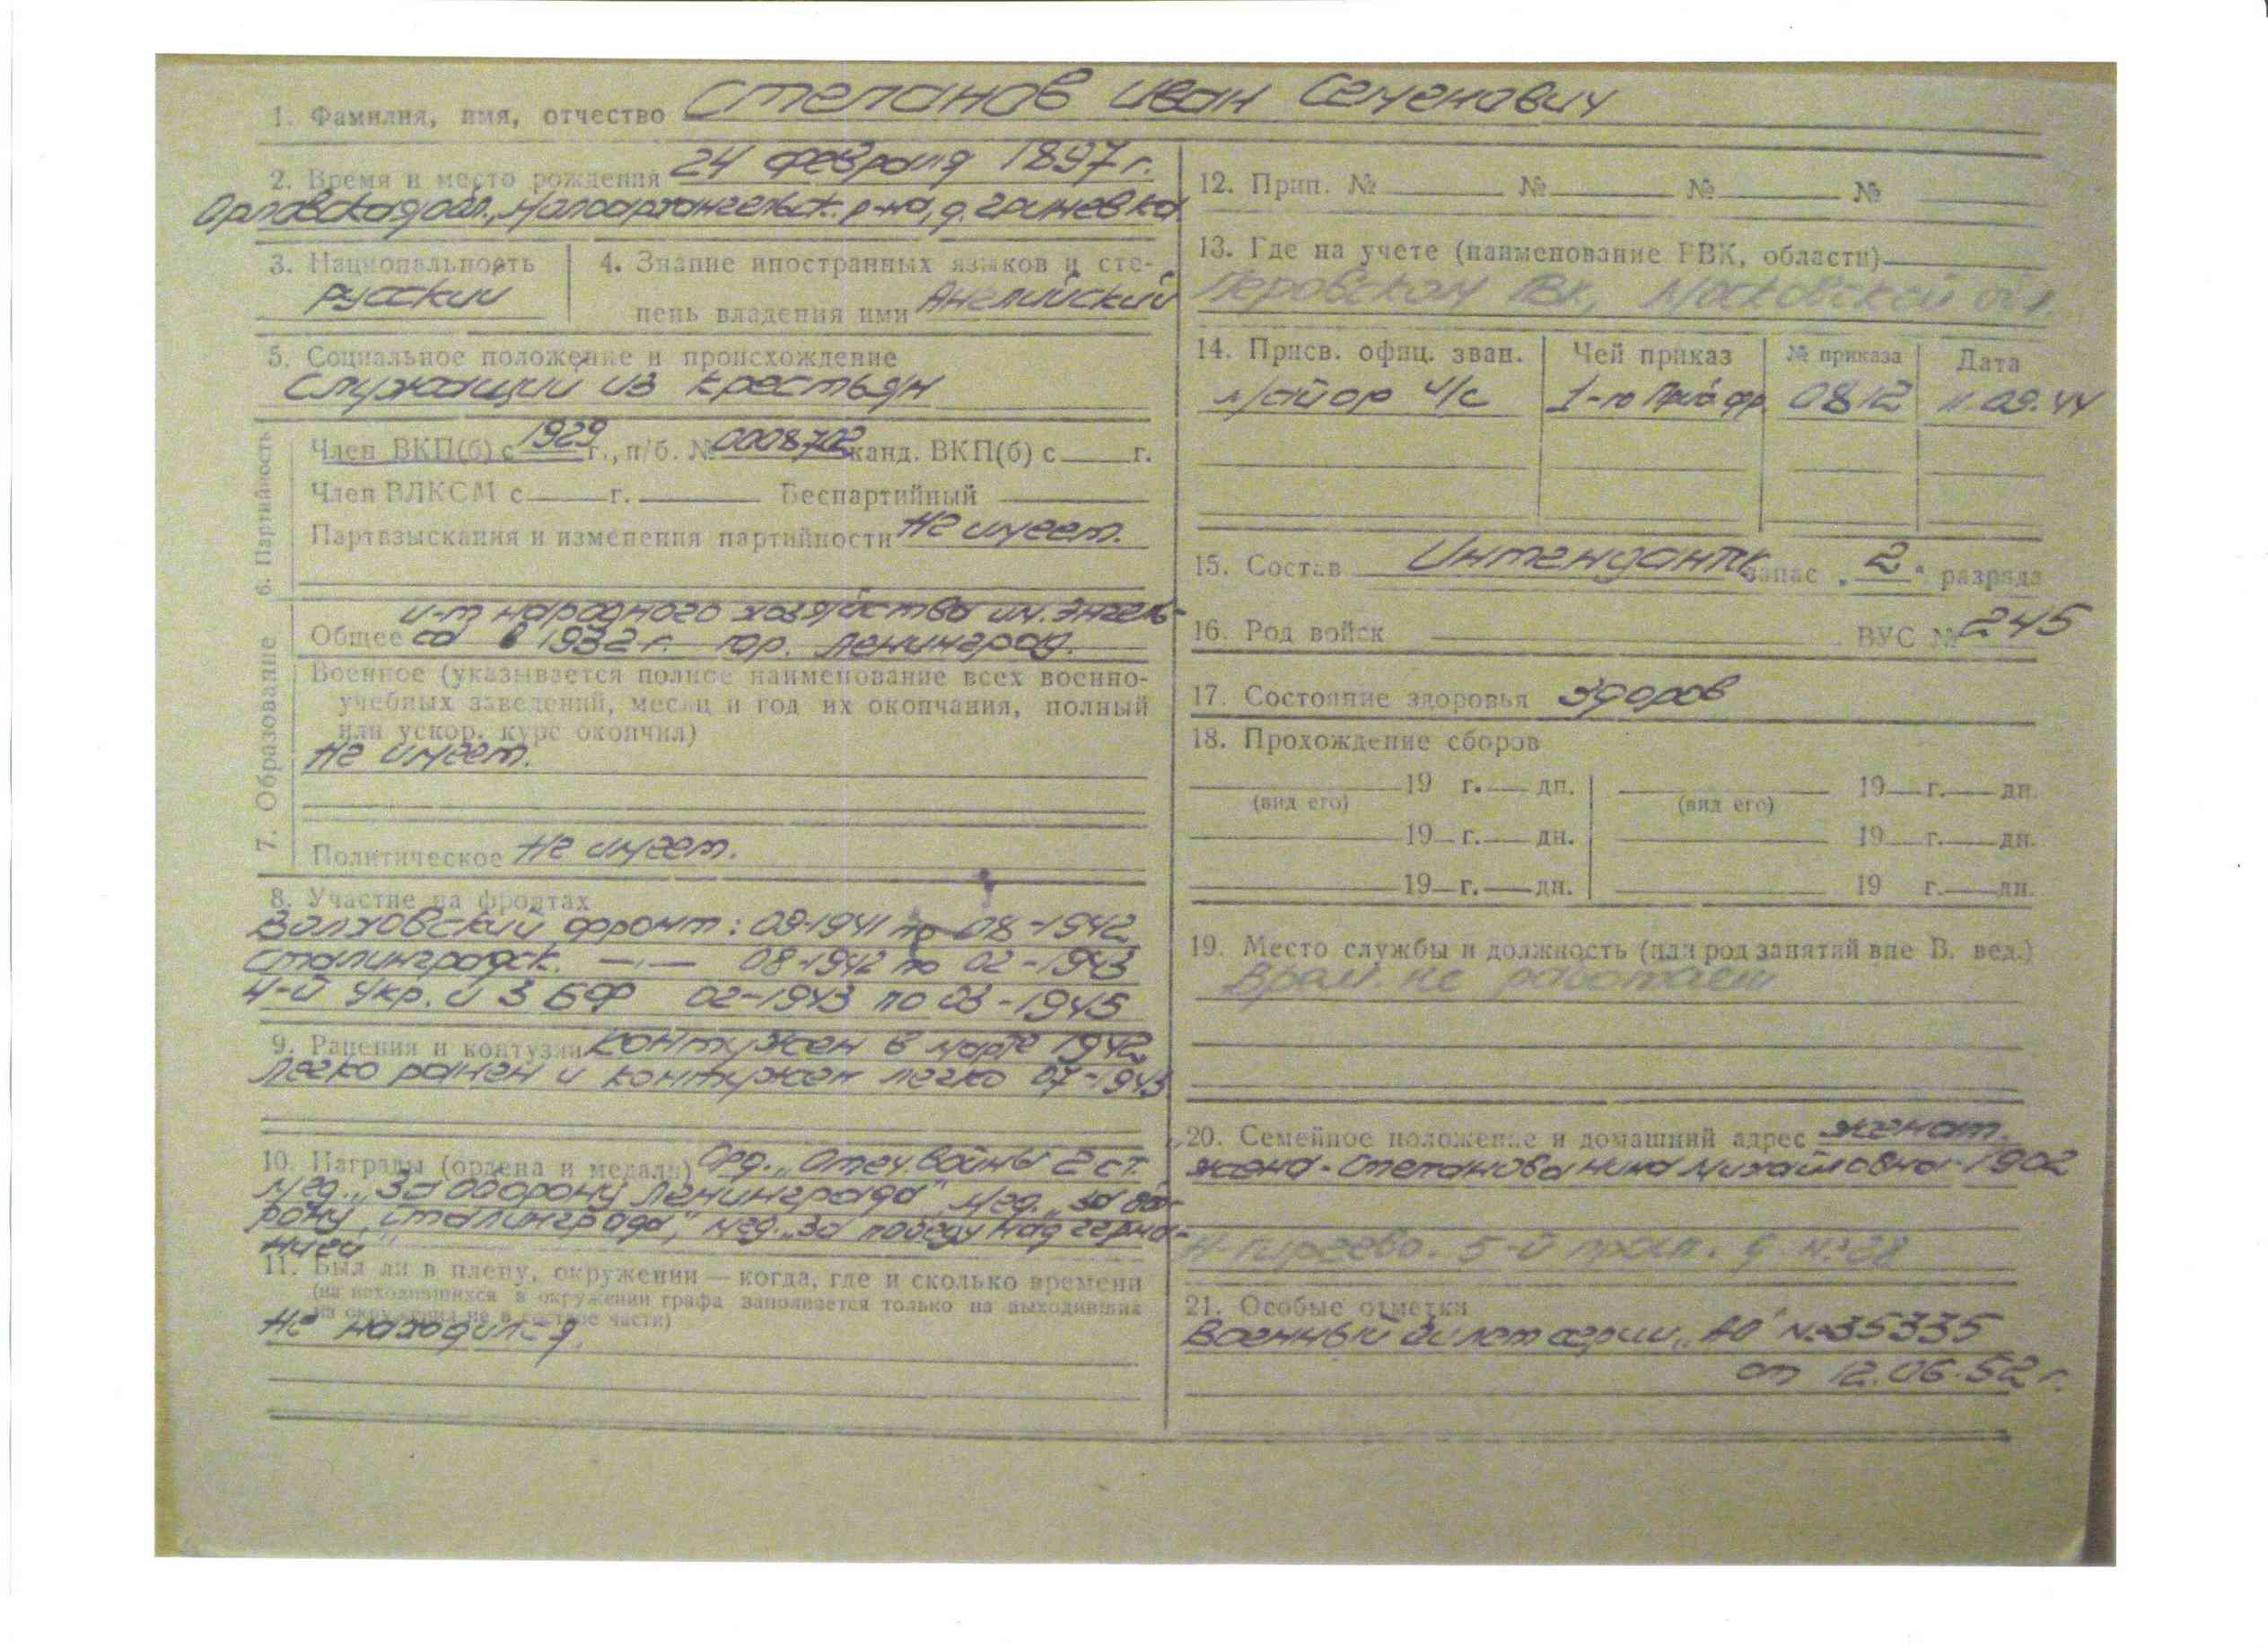 1. Фамилия, имя, отчество Степанов Иван Семенович
2. Время и место рождения 24 февраля 1897 г.
Орловская обл., Малоархангельск. р-на, д. Гриневка
3. Национальность
русский
4. Знание иностранных языков и сте-
пень владения ими Английский
5. Социальное положение и происхождение
Служащий из крестьян
6. Партийность
Член ВКП(б) с 1929 г., п/б. № 0008702 канд. ВКП(б) с г.
Член ВЛКСМ с г. Беспартийный
Партвзыскания и изменения партийности Не имеет.
7. Образование
и-т народного хозяйства им. Энгель-
Общее са в 1932 г. гор. Ленинград.
Военное (указывается полное наименование всех военно-
учебных заведений, месяц и год их окончания, полный
или ускор. курс окончил)
Не имеет.
Политическое Не имеет.
8. Участие на фронтах
Волховский фронт: 09-1941 по 08-1942
Сталинградск. —"— 08-1942 по 02-1943
4-й Укр. и 3 БФ 02-1943 по 03-1945
9. Ранения и контузии контужен в марте 1942
Легко ранен и контужен легко 07-1943
10. Награды (ордена и медали) Орд. „Отеч. войны 2 ст.
Мед. „За оборону Ленинграда", Мед. „За обо-
рону „Сталинграда", мед. „За победу над Герма-
нией"
11. Был ли в плену, окружении — когда, где и сколько времени
(на находившихся в окружении графа заполняется только на выходивших
из окружения не в составе части)
Не находился.
12. Прип. № № № №
13. Где на учете (наименование РВК, области)
Перовском РВК, Московской обл.
14. Присв. офиц. зван. Чей приказ № приказа Дата
м/айор и/с 1-го Приб фр. 0812 11.09.44
15. Состав Интендантск запас „2" разряда
16. Род войск ВУС № 245
17. Состояние здоровья здоров
18. Прохождение сборов
19 г. дн. 19 г. дн.
(вид его) (вид его)
19 г. дн. 19 г. дн.
19 г. дн. 19 г. дн.
19. Место службы и должность (или род занятий вне В. вед.)
Врем. не работает
20. Семейное положение и домашний адрес женат.
жена - Степанова Нина Михайловна - 1902
Н-Гиреево. 5-й просп. д. № 28
21. Особые отметки
Военный билет серии „АО" № 35335
от 12.06.52 г.